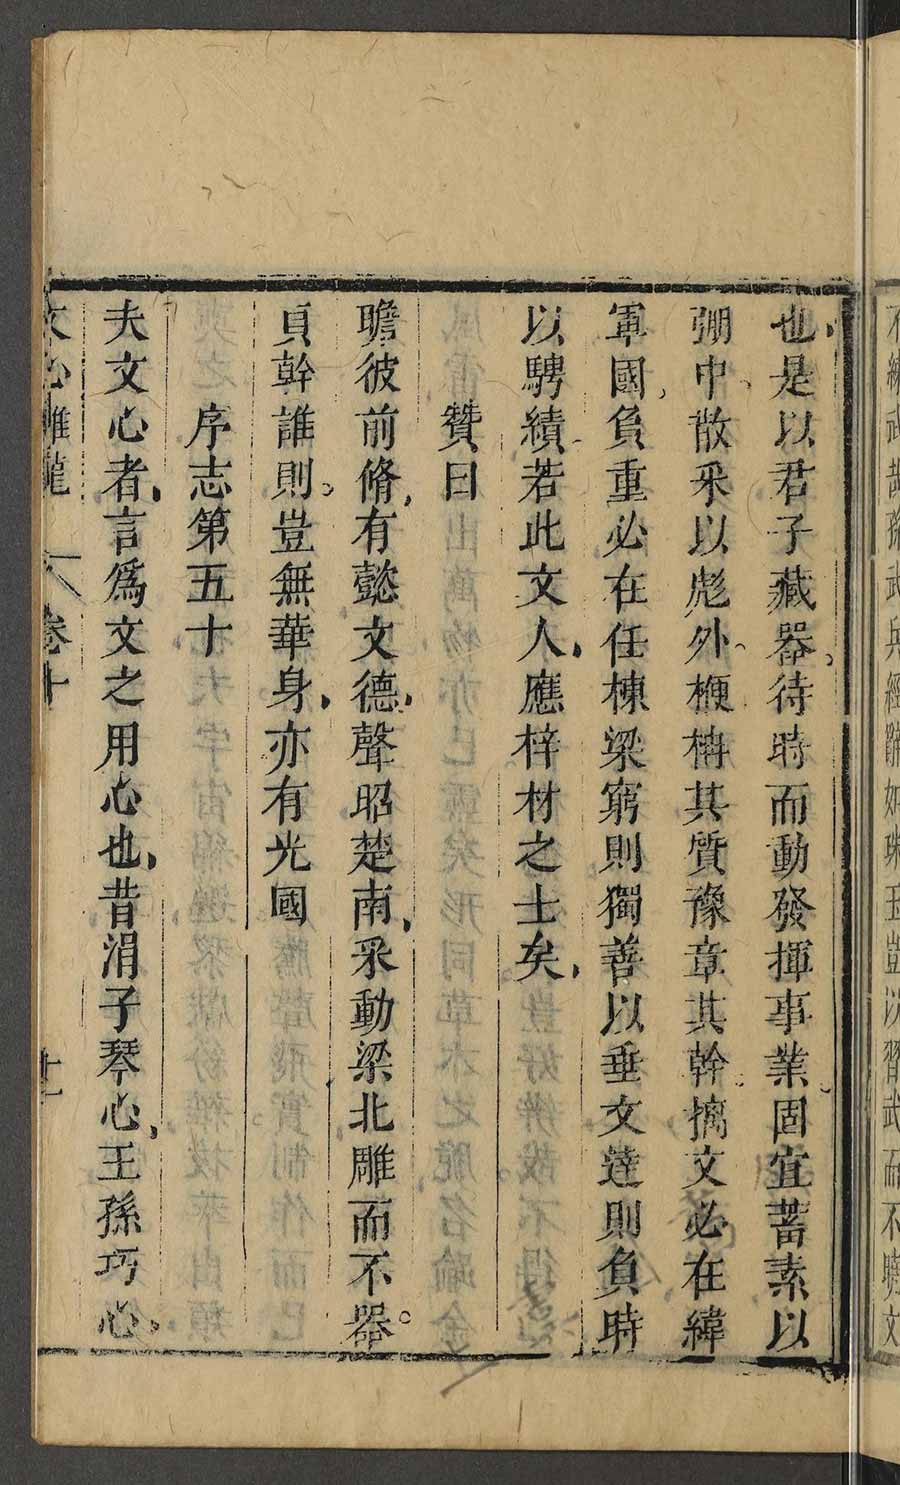 不練武哉孫武兵經辭如珠玉豈以習武而不曉文
也是以君子藏器待時而動發揮事業固宜蓄素以
弸中散采以彪外楩柟其質豫章其幹摛文必在緯
軍國負重必在任棟梁窮則獨善以垂文達則負時
以騁績若此文人應梓材之士矣
贊曰
瞻彼前脩有懿文德聲昭楚南采動梁北雕而不器
貞幹誰則豈無華身亦有光國
序志第五十
夫文心者言爲文之用心也昔涓子琴心王孫巧心
文心雕龍 卷十 十一